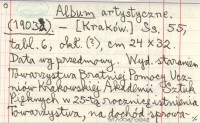 Album artystyczne.
(1903). – [Kraków]. S. 3, 55,
tabl. 6, okł. (?), cm 24 x 32.
Data wg przedmowy. Wyd. staraniem
Towarzystwa Bratniej Pomocy Ucz-
niów Krakowskiej Akademii Sztuk
Pięknych w 25-tą rocznicę istnienia
Towarzystwa, na dochód sprowa-